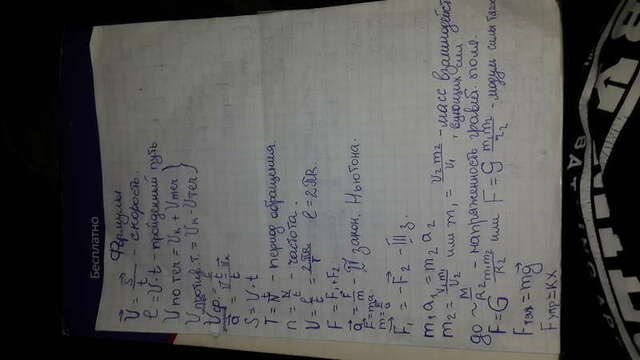 Бесплатно
Формулы
V⃗ = S⃗/t - скорость.
ℓ = V·t - пройденный путь
V по теч = Vк + Vтеч
V против т. = Vк - Vтеч
Vср. =
S = V·t
T = t/N - период обращения.
n = N/t - частота.
V = ℓ/t = 2πR/T ℓ = 2πR.
F = F₁ + F₂
a⃗ = F⃗/m - II закон Ньютона.
F = ma
m = F/a
F⃗₁ = -F⃗₂ - III з.
m₁a₁ = m₂a₂
m₂ = V₁m₁/V₂ или m₁ = V₂m₂/V₁ - масс взаимодейст
вующих
до ~ M/R² - напряженность гравит. поля.
F = G m₁m₂/R² или F = G m₁m₂/r² - модуль силы
Fтяж = mg⃗
Fупр = kx